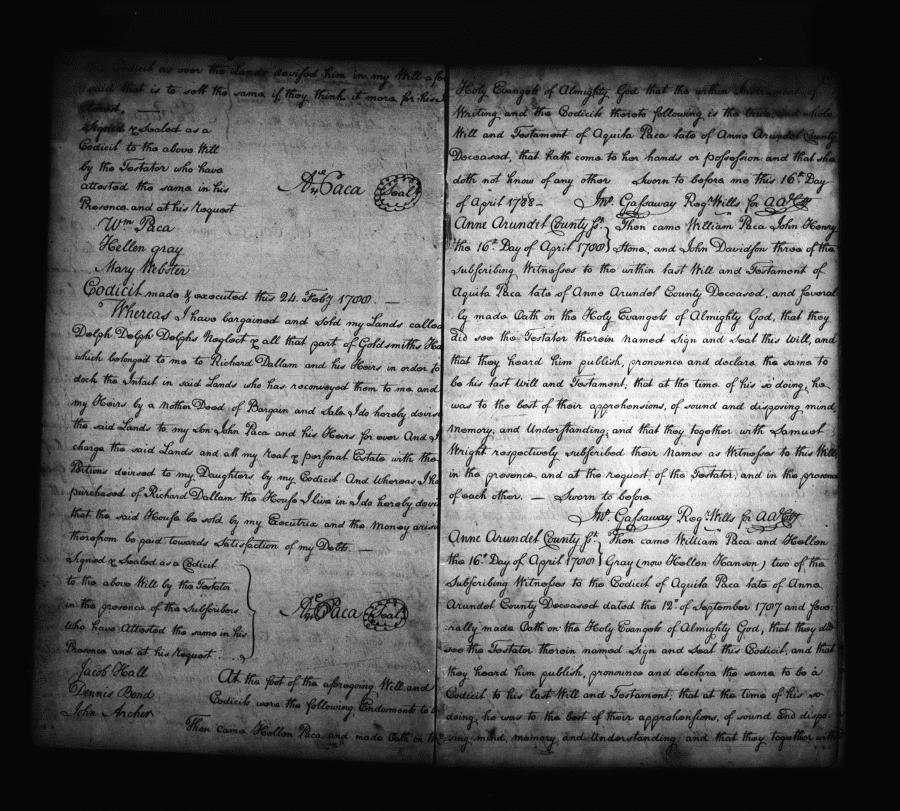 Codicil as over the Lands devised him in my Will afo
said that is to sell the same if they think it more for his
Interest, —
Signed & Sealed as a
Codicil to the above Will
by the Testator who have
attested the same in his
Presence and at his Request
Aq Paca Seal
Wm Paca
Hellen gray
Mary Webster
Codicil made & executed this 24. Feby 1788. —
Whereas I have bargained and Sold my Lands called
Dolph Dolph Dolphs Neglect & all that part of Goldsmiths
which belonged to me to Richard Dallam and his Heirs in order to
dock the Intail in said Lands who has reconveyed them to me and
my Heirs by a nother Deed of Bargain and Sale, I do hereby devise
the said Lands to my Son John Paca and his Heirs for ever And I
charge the said Lands and all my real & personal Estate with the
Potions devised to my Daughters by my Codicil And Whereas I ha
purchased of Richard Dallam the House I live in I do hereby devi
that the said House be sold by my Executrix and the Money arisi
therefrom be paid towards Satisfaction of my Debts. —
Signed & Sealed as a Codicil
to the above Will by the Testator
in the presence of the Subscribers
who have Attested the same in his
Presence and at his Request.
Aq Paca Seal
Jacob Hall
Dennis Bond
John Archer
At the foot of the aforegoing Will and
Codicils were the following Endorsments to
Then came Hellen Paca and made Oath on the
Holy Evangels of Almighty God that the within Instrument of
Writing and the Codicils thereto following is the true and whole
Will and Testament of Aquila Paca late of Anne Arundel County
Deceased, that hath come to her hands or possession and that she
doth not know of any other Sworn to before me this 16th Day
of April 1788 — Jno. Gassaway Regr. Wills for AA Cty
Anne Arundel County Sct. Then came William Paca John Henry
the 16th Day of April 1788 Stone, and John Davidson three of the
subscribing Witnesses to the within last Will and Testament of
Aquila Paca late of Anne Arundel County Deceased, and several
ly made Oath on the Holy Evangels of Almighty God, that they
did see the Testator therein named Sign and Seal this Will, and
that they heard him publish, pronounce and declare the same to
be his last Will and Testament; that at the time of his so doing, he
was to the best of their apprehensions, of sound and disposing mind,
memory, and Understanding; and that they together with Samuel
Wright respectively subscribed their Names as Witnesses to this Will,
in the presence, and at the request of the Testator, and in the presence
of each other. — Sworn to before
Jno. Gassaway Regr. Wills for AA Cty
Anne Arundel County Sct. Then came William Paca and Hellen
the 16th Day of April 1788 Gray (now Hellen Hanson) two of the
Subscribing Witnesses to the Codicil of Aquila Paca late of Anne
Arundel County Deceased dated the 12th of September 1787 and seve
rally made Oath on the Holy Evangels of Almighty God, that they did
see the Testator therein named Sign and Seal this Codicil, and that
they heard him publish, pronounce and declare the same to be a
Codicil to his last Will and Testament; that at the time of his so
doing, he was to the best of their apprehensions, of sound and dispo
sing mind, memory, and Understanding; and that they together with